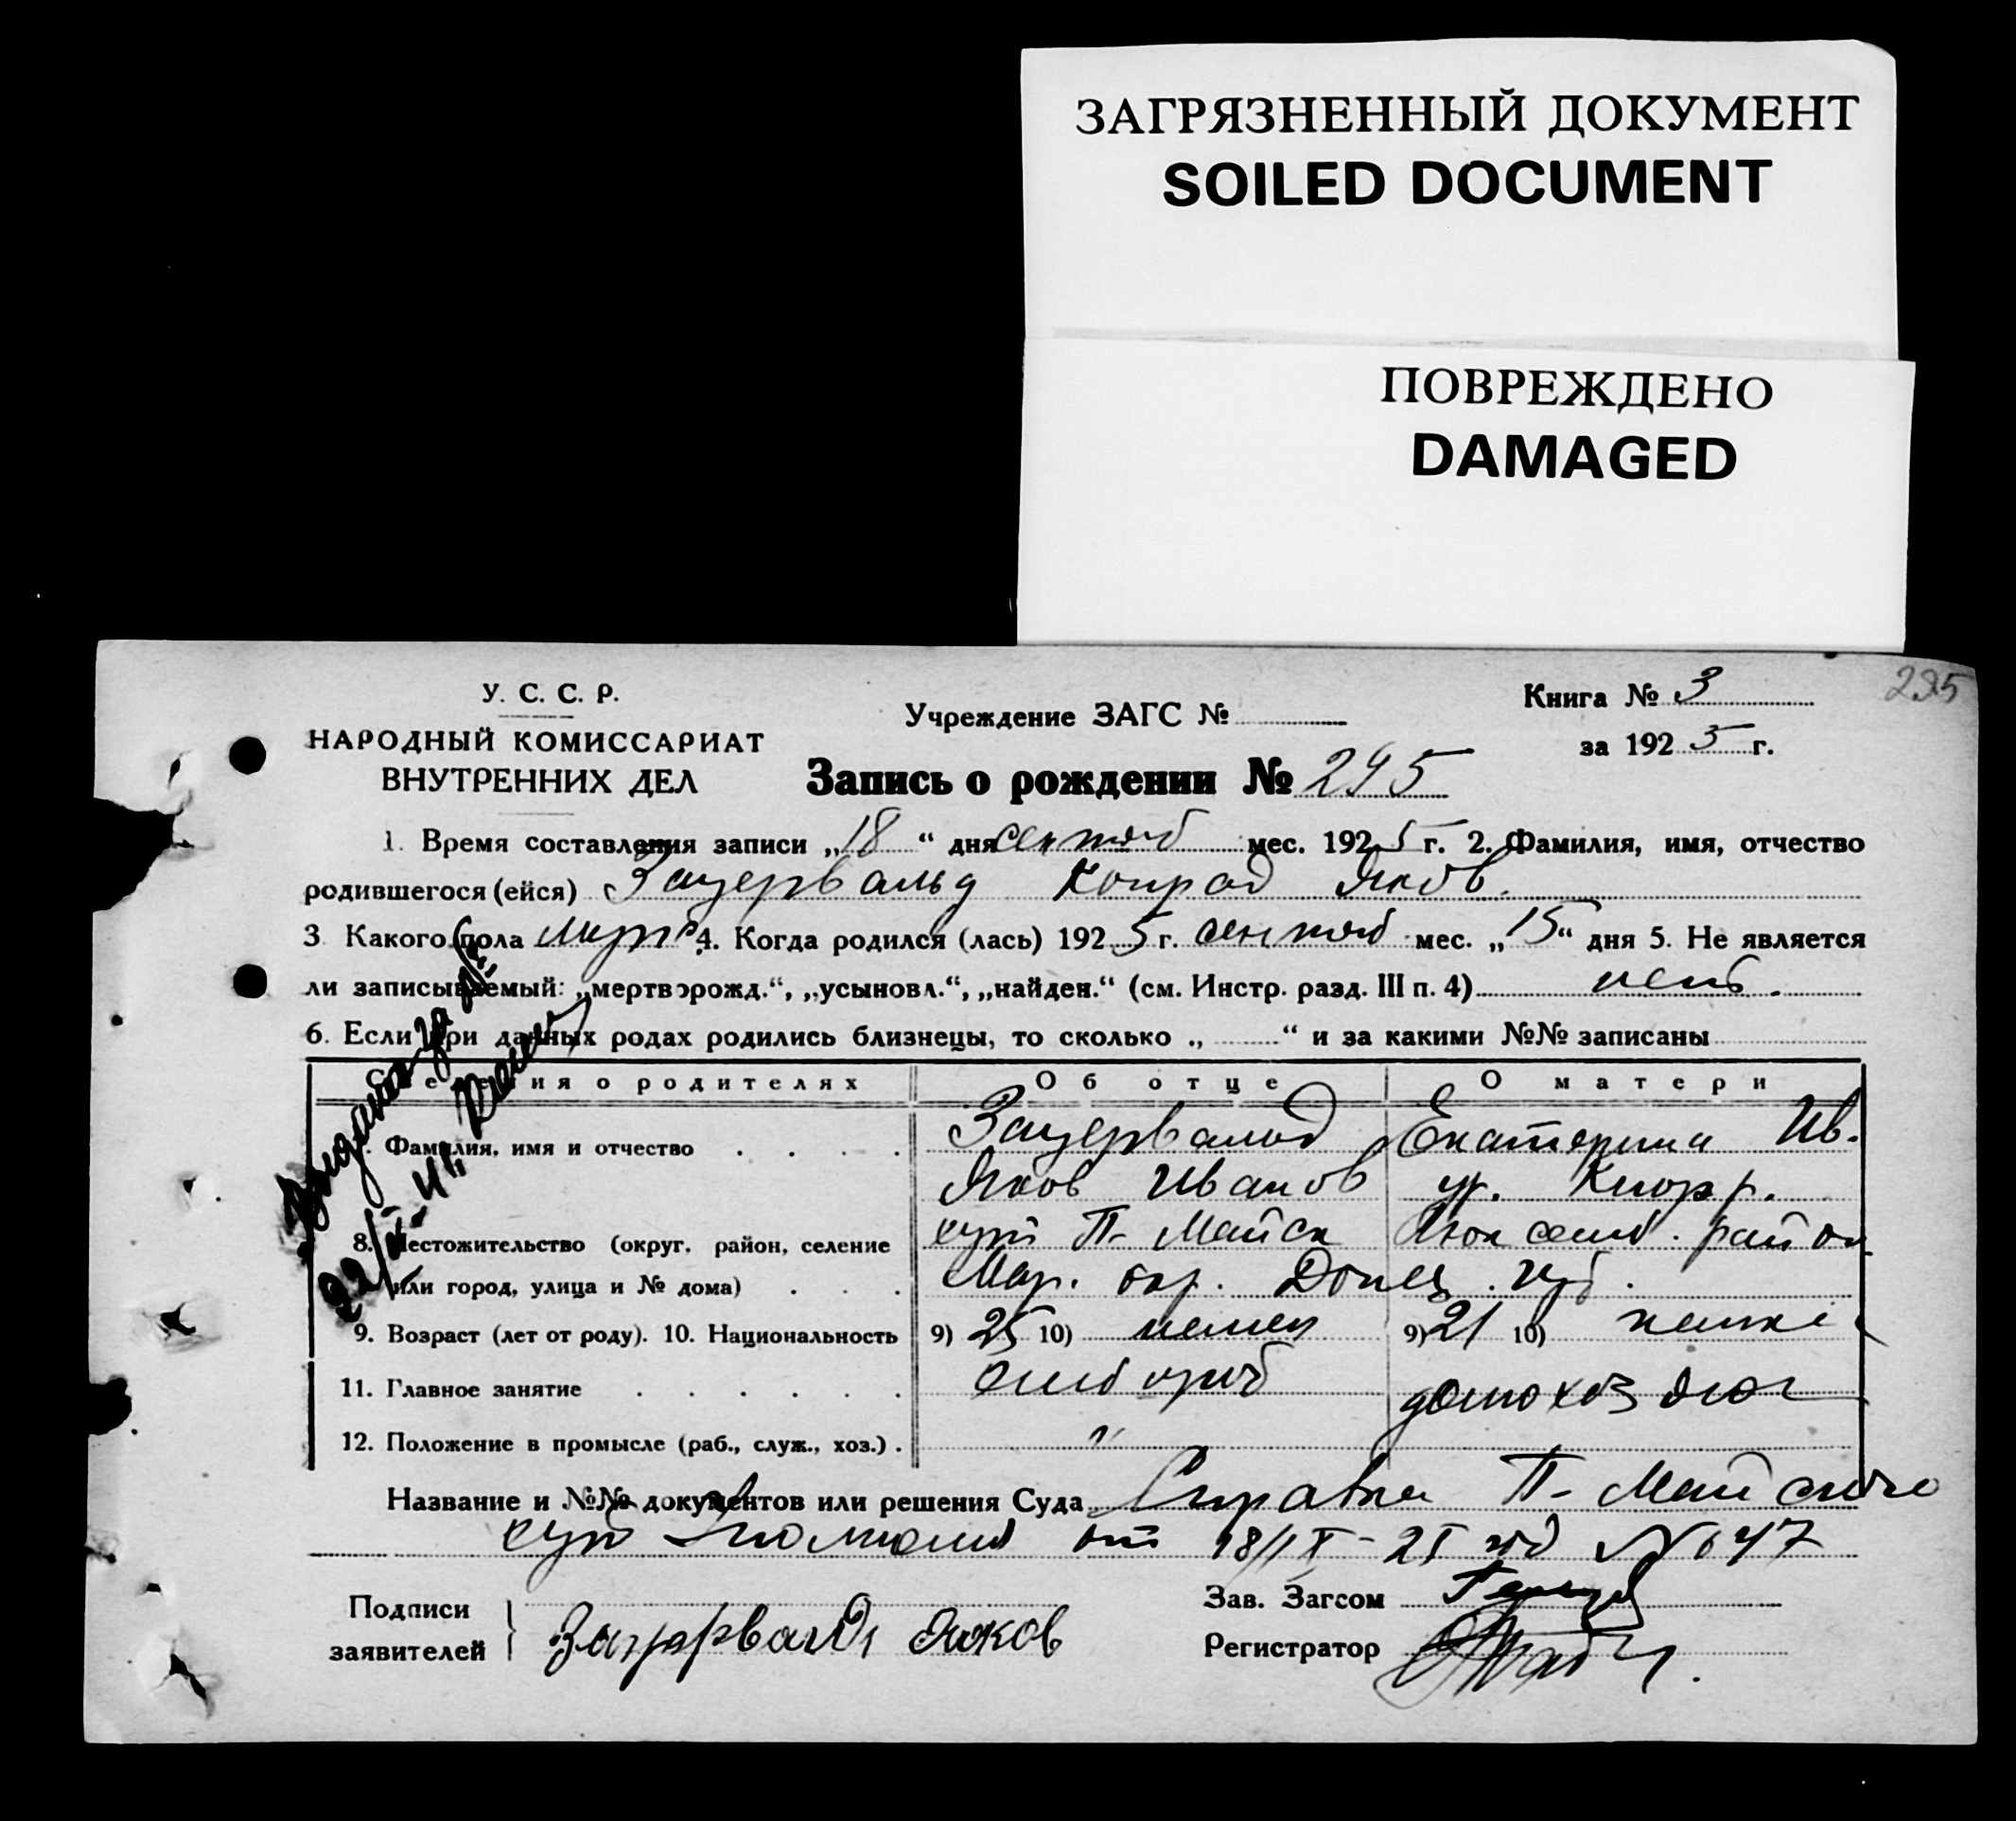 ЗАГРЯЗНЕННЫЙ ДОКУМЕНТ
SOILED DOCUMENT
ПОВРЕЖДЕНО
DAMAGED
У. С. С. Р.
НАРОДНЫЙ КОМИССАРИАТ
ВНУТРЕННИХ ДЕЛ
Учреждение ЗАГС №
Книга № 3
295
за 1925 г.
Запись о рождении № 295
1. Время составления записи „18“ дня сентяб мес. 1925 г. 2. Фамилия, имя, отчество
родившегося (ейся) Зауервальд Конрад Яков.
3 Какого пола муж 4. Когда родился (лась) 1925 г. сентяб мес. „15“ дня 5. Не является
ли записываемый: „мертворожд.“, „усыновл.“, „найден.“ (см. Инстр. разд. III п. 4)
6. Если при данных родах родились близнецы, то сколько „ “ и за какими №№ записаны
Сведения о родителях Об отце О матери
Фамилия, имя и отчество Зауервальд Екатерина Ив.
Яков Иванов ур. Кнорр.
8. Местожительство (округ, район, селение хут П-Майск район
или город, улица и № дома) Мар. окр. Донец. губ.
9. Возраст (лет от роду). 10. Национальность 9) 25 10) немец 9) 21 10) немка
11. Главное занятие хлебороб домохоз
12. Положение в промысле (раб., служ., хоз.) "
Название и №№ документов или решения Суда Справка П-Майского
хут от 18/IX-25 год № 647
Подписи
заявителей Зауервальд Яков
Зав. Загсом
Регистратор